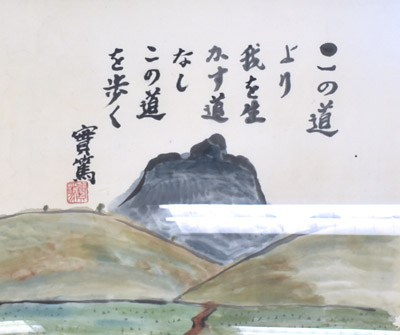 この道
より
我を生
かす道
なし
この道
を歩く
實篤